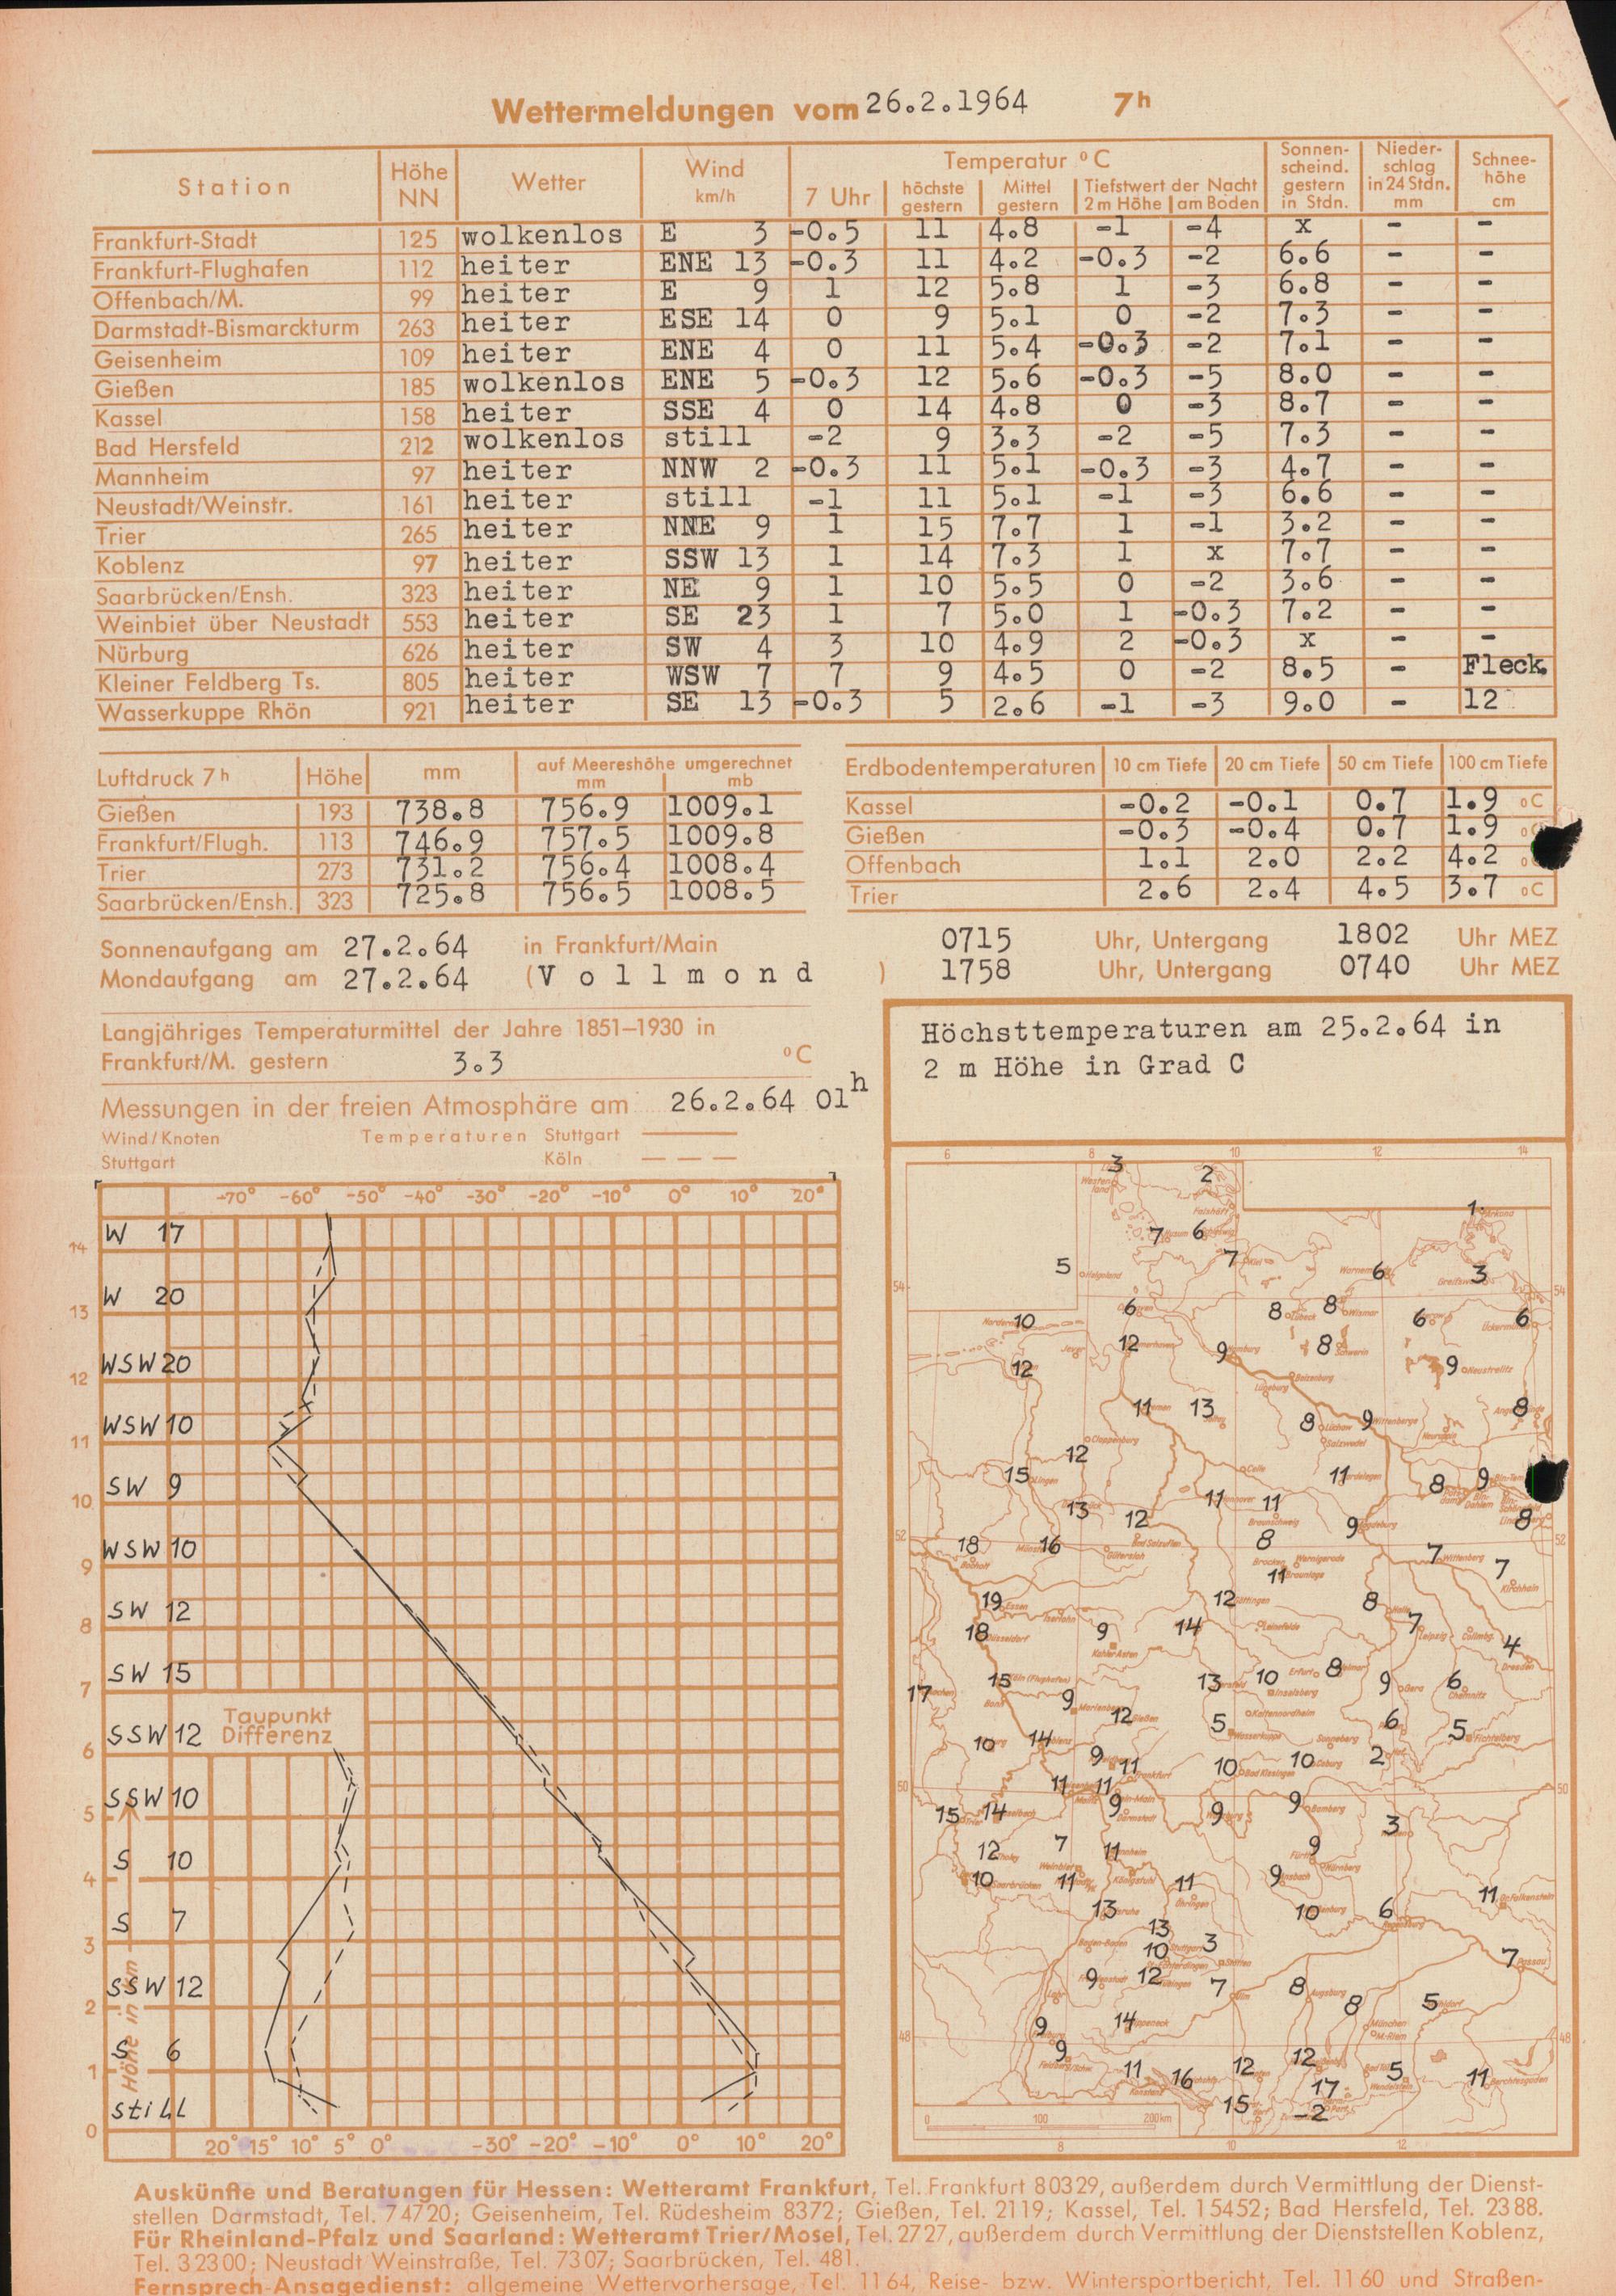 Wettermeldungen vom 26.2.1964 7h
Station Höhe NN Wetter Wind km/h Temperatur °C Sonnenscheind. gestern in Stdn. Niederschlag in 24 Stdn. mm Schneehöhe cm
7 Uhr höchste gestern Mittel gestern Tiefstwert der Nacht 2 m Höhe am Boden
Frankfurt-Stadt 125 wolkenlos E 3 -0.5 11 4.8 -1 -4 x - -
Frankfurt-Flughafen 112 heiter ENE 13 -0.3 11 4.2 -0.3 -2 6.6 - -
Offenbach/M. 99 heiter E 9 1 12 5.8 1 -3 6.8 - -
Darmstadt-Bismarckturm 263 heiter ESE 14 0 9 5.1 0 -2 7.3 - -
Geisenheim 109 heiter ENE 4 0 11 5.4 -0.3 -2 7.1 - -
Gießen 185 wolkenlos ENE 5 -0.3 12 5.6 -0.3 -5 8.0 - -
Kassel 158 heiter SSE 4 0 14 4.8 0 -3 8.7 - -
Bad Hersfeld 212 wolkenlos still -2 9 3.3 -2 -5 7.3 - -
Mannheim 97 heiter NNW 2 -0.3 11 5.1 -0.3 -3 4.7 - -
Neustadt/Weinstr. 161 heiter still -1 11 5.1 -1 -3 6.6 - -
Trier 265 heiter NNE 9 1 15 7.7 1 -1 3.2 - -
Koblenz 97 heiter SSW 13 1 14 7.3 1 x 7.7 - -
Saarbrücken/Ensh. 323 heiter NE 9 1 10 5.5 0 -2 3.6 - -
Weinbiet über Neustadt 553 heiter SE 23 1 7 5.0 1 -0.3 7.2 - -
Nürburg 626 heiter SW 4 3 10 4.9 2 -0.3 x - -
Kleiner Feldberg Ts. 805 heiter WSW 7 7 9 4.5 0 -2 8.5 - Fleck.
Wasserkuppe Rhön 921 heiter SE 13 -0.3 5 2.6 -1 -3 9.0 - 12
Luftdruck 7h Höhe mm auf Meereshöhe umgerechnet mm mb
Gießen 193 738.8 756.9 1009.1
Frankfurt/Flugh. 113 746.9 757.5 1009.8
Trier 273 731.2 756.4 1008.4
Saarbrücken/Ensh. 323 725.8 756.5 1008.5
Erdbodentemperaturen 10 cm Tiefe 20 cm Tiefe 50 cm Tiefe 100 cm Tiefe
Kassel -0.2 -0.1 0.7 1.9 °C
Gießen -0.3 -0.4 0.7 1.9
Offenbach 1.1 2.0 2.2 4.2
Trier 2.6 2.4 4.5 3.7 °C
Sonnenaufgang am 27.2.64 in Frankfurt/Main 0715 Uhr, Untergang 1802 Uhr MEZ
Mondaufgang am 27.2.64 (V o l l m o n d ) 1758 Uhr, Untergang 0740 Uhr MEZ
Langjähriges Temperaturmittel der Jahre 1851–1930 in
Frankfurt/M. gestern 3.3 °C
Messungen in der freien Atmosphäre am 26.2.64 01h
Wind/Knoten Temperaturen Stuttgart
Stuttgart Köln
-70° -60° -50° -40° -30° -20° -10° 0° 10° 20°
W 17
14
W 20
13
WSW 20
12
WSW 10
11
SW 9
10
WSW 10
9
SW 12
8
SW 15
7
SSW 12 Taupunkt Differenz
6
SSW 10
5
S 10
4
S 7
3
SSW 12
2
S 6
1
still
0
Höhe in km
20° 15° 10° 5° 0° -30° -20° -10° 0° 10° 20°
Höchsttemperaturen am 25.2.64 in
2 m Höhe in Grad C
6 8 10 12 14
3 2
1
7 6
5 7 6 3
54 54
10 6 8 8 6 6
12 12 9 8 9
11 13 8 9 8
12
15 11 8 9
13 12 11 11 9 8
52 52
18 16 8 7 7
11
19 12 8
18 9 14 7 4
17 15 9 13 10 8 9 6
12 5 6 5
10 14 9 11 10 10 2
50 50
11 11 9
15 14 9 9 3
12 7 11 9
10 11 11 9 11
13 10 6
13 10 3 7
9 12 7 8 8 5
48 48
9 14
9 11 16 12 12 5 11
15 17 -2
0 100 200 km
8 10 12
Auskünfte und Beratungen für Hessen: Wetteramt Frankfurt, Tel. Frankfurt 80329, außerdem durch Vermittlung der Dienst-
stellen Darmstadt, Tel. 74720; Geisenheim, Tel. Rüdesheim 8372; Gießen, Tel. 2119; Kassel, Tel. 15452; Bad Hersfeld, Tel. 2388.
Für Rheinland-Pfalz und Saarland: Wetteramt Trier/Mosel, Tel. 2727, außerdem durch Vermittlung der Dienststellen Koblenz,
Tel. 32300; Neustadt Weinstraße, Tel. 7307; Saarbrücken, Tel. 481.
Fernsprech-Ansagedienst: allgemeine Wettervorhersage, Tel. 1164, Reise- bzw. Wintersportbericht, Tel. 1160 und Straßen-